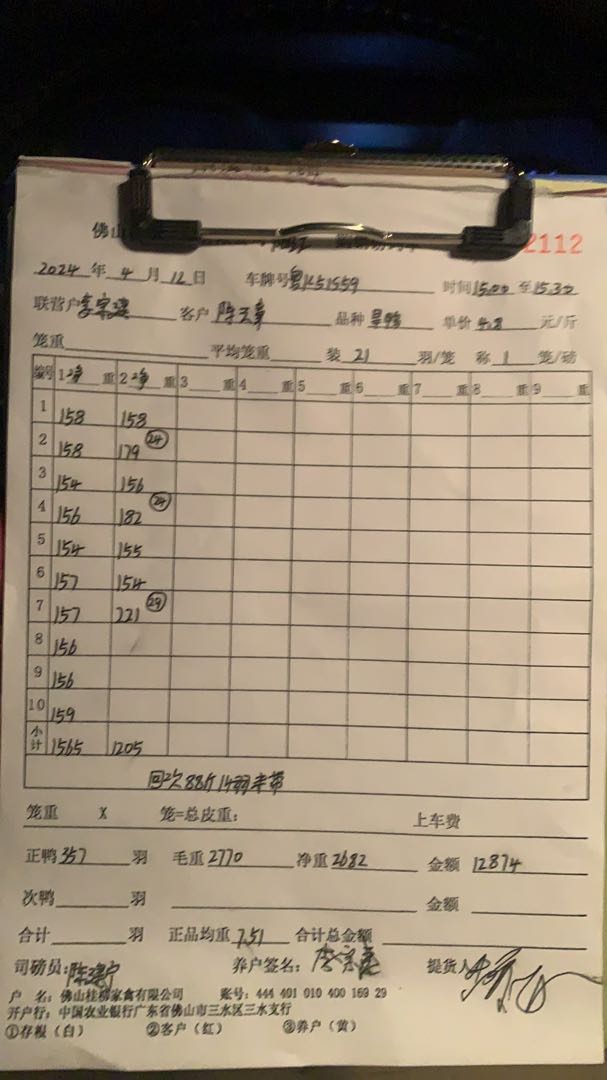 佛山
2112
2024 年 4 月 12 日 车牌号 粤K51559 时间 15.00 至 15.30
联营户 客户 品种 单价 4.8 元/斤
笼重 平均笼重 装 21 羽/笼 称 1 笼/磅
编号 1 净 重 2 净 重 3 重 4 重 5 重 6 重 7 重 8 重 9 重
1 158 158
2 158 179 (24)
3 154 156
4 156 182 (24)
5 154 155
6 157 154
7 157 221 (29)
8 156
9 156
10 159
小计 1565 1205
回次88斤14羽未带
笼重 X 笼=总皮重: 上车费
正鸭 357 羽 毛重 2770 净重 2682 金额 12874
次鸭 羽 金额
合计 羽 正品均重 7.51 合计总金额
司磅员: 养户签名: 提货人
户 名: 佛山桂柳家禽有限公司 账号: 444 401 010 400 169 29
开户行: 中国农业银行广东省佛山市三水区三水支行
①存根(白) ②客户(红) ③养户(黄)